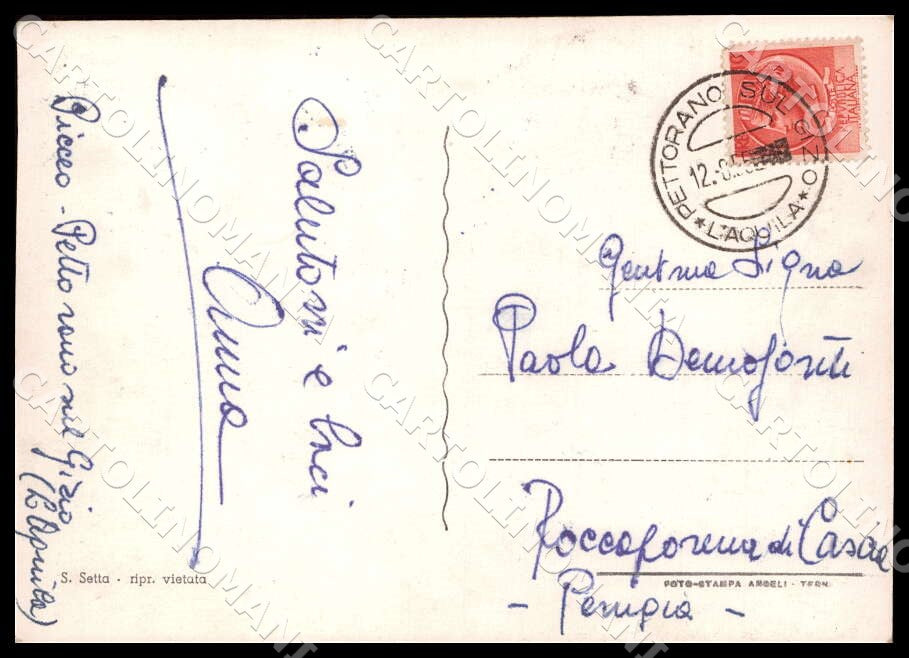 Saluroni e baci
Anna
- Pettorano sul Gizio
(L'Aquila)
S. Setta - ripr. vietata
PETTORANO SUL GIZIO
12.-8.55
* L'AQUILA *
REPUBBLICA
ITALIANA
Gent.ma Sig.na
Paola
Roccaporena di Cascia
FOTO-STAMPA ANGELI - TERNI
- Perugia -
CARTOLINOMANIA